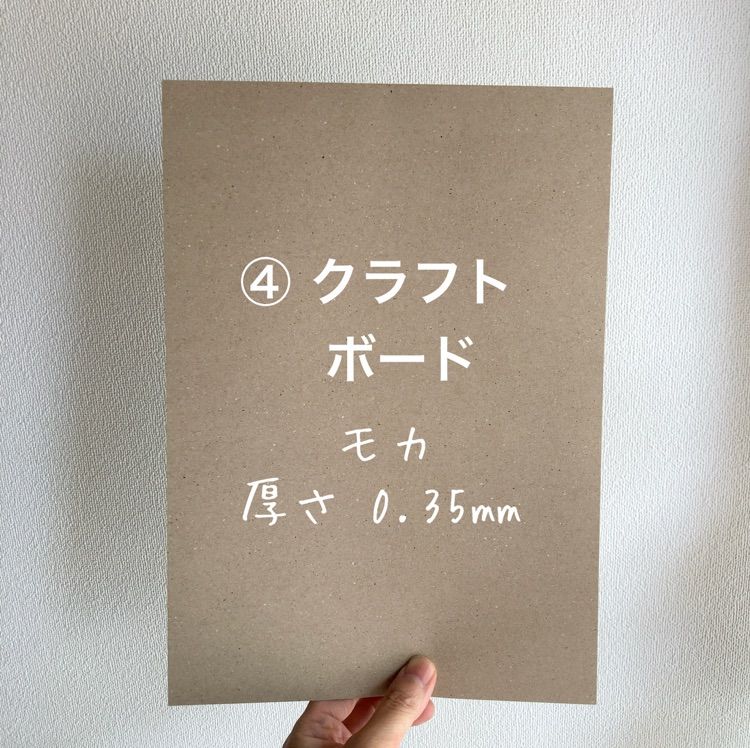 ④ クラフト
ボード
モカ
厚さ 0.35mm